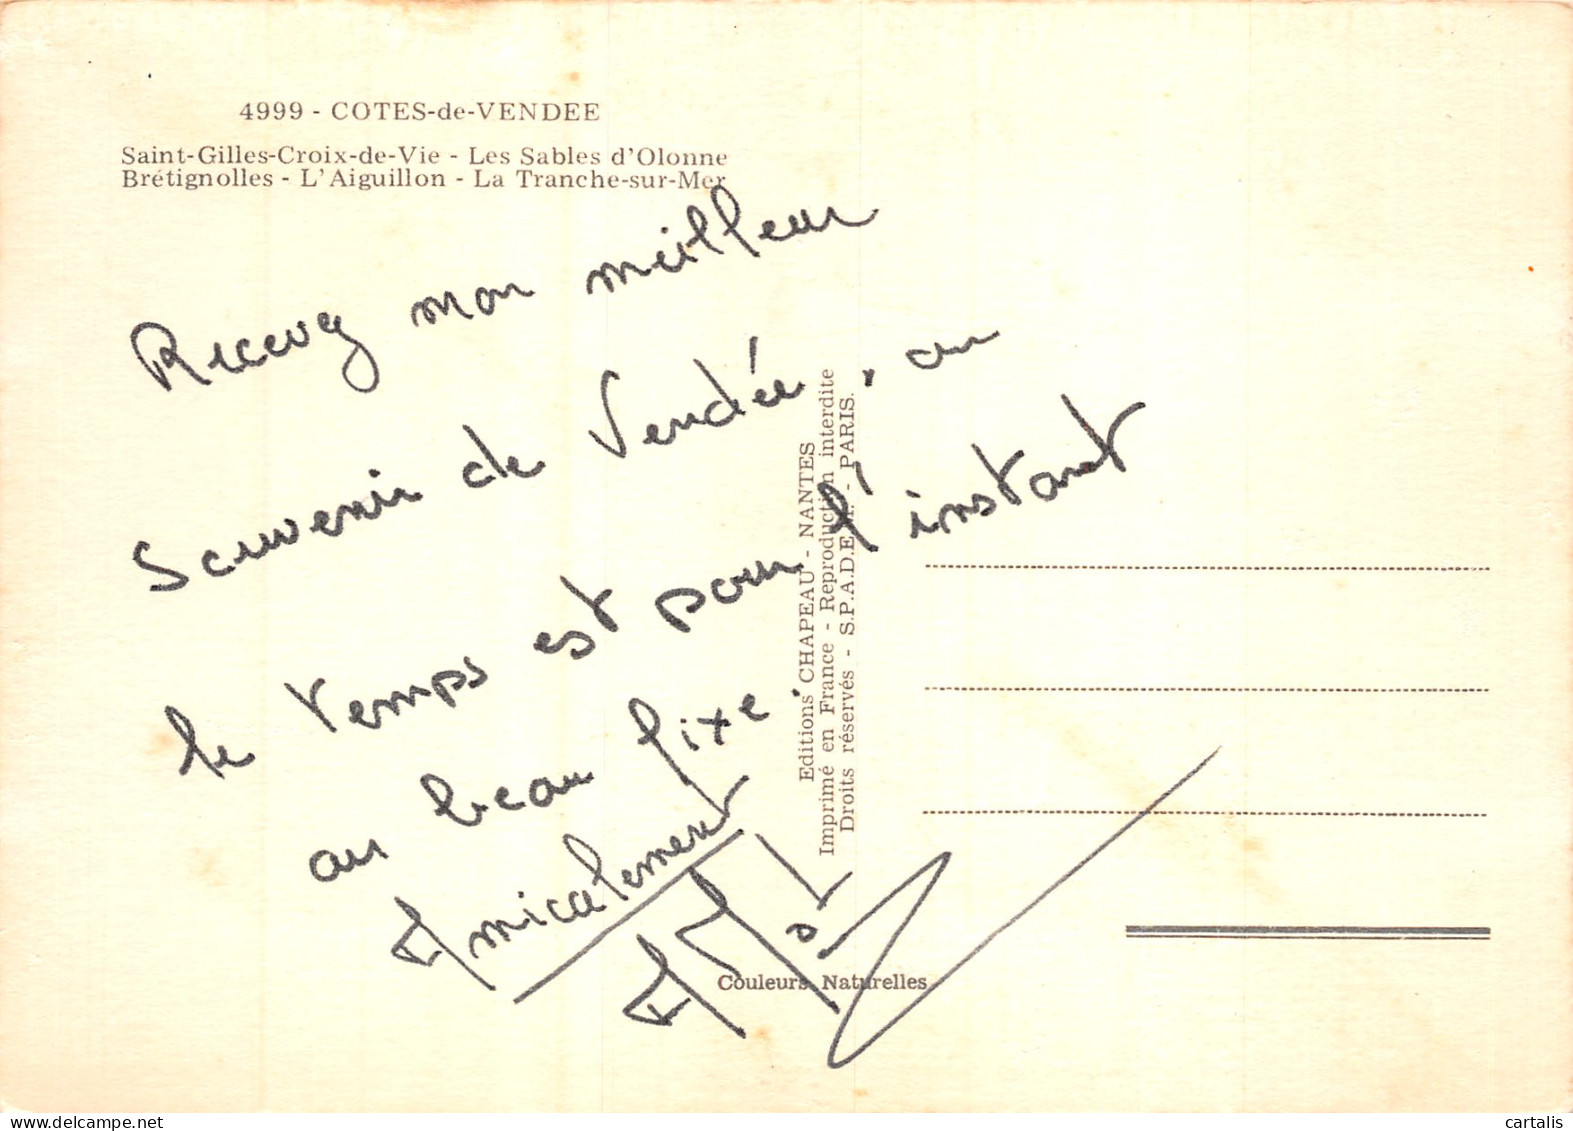 4999 - COTES-de-VENDEE
Saint-Gilles-Croix-de-Vie - Les Sables d'Olonne
Brétignolles - L'Aiguillon - La Tranche-sur-Mer
Recevez mon meilleur
Souvenir de Vendée, ou
le temps est pour l'instant
au beau fixe.
Amicalement
Editions CHAPEAU - NANTES
Imprimé en France - Reproduction interdite
Droits réservés - S.P.A.D.E.M. - PARIS.
Couleurs Naturelles
delcampe.net
cartalis